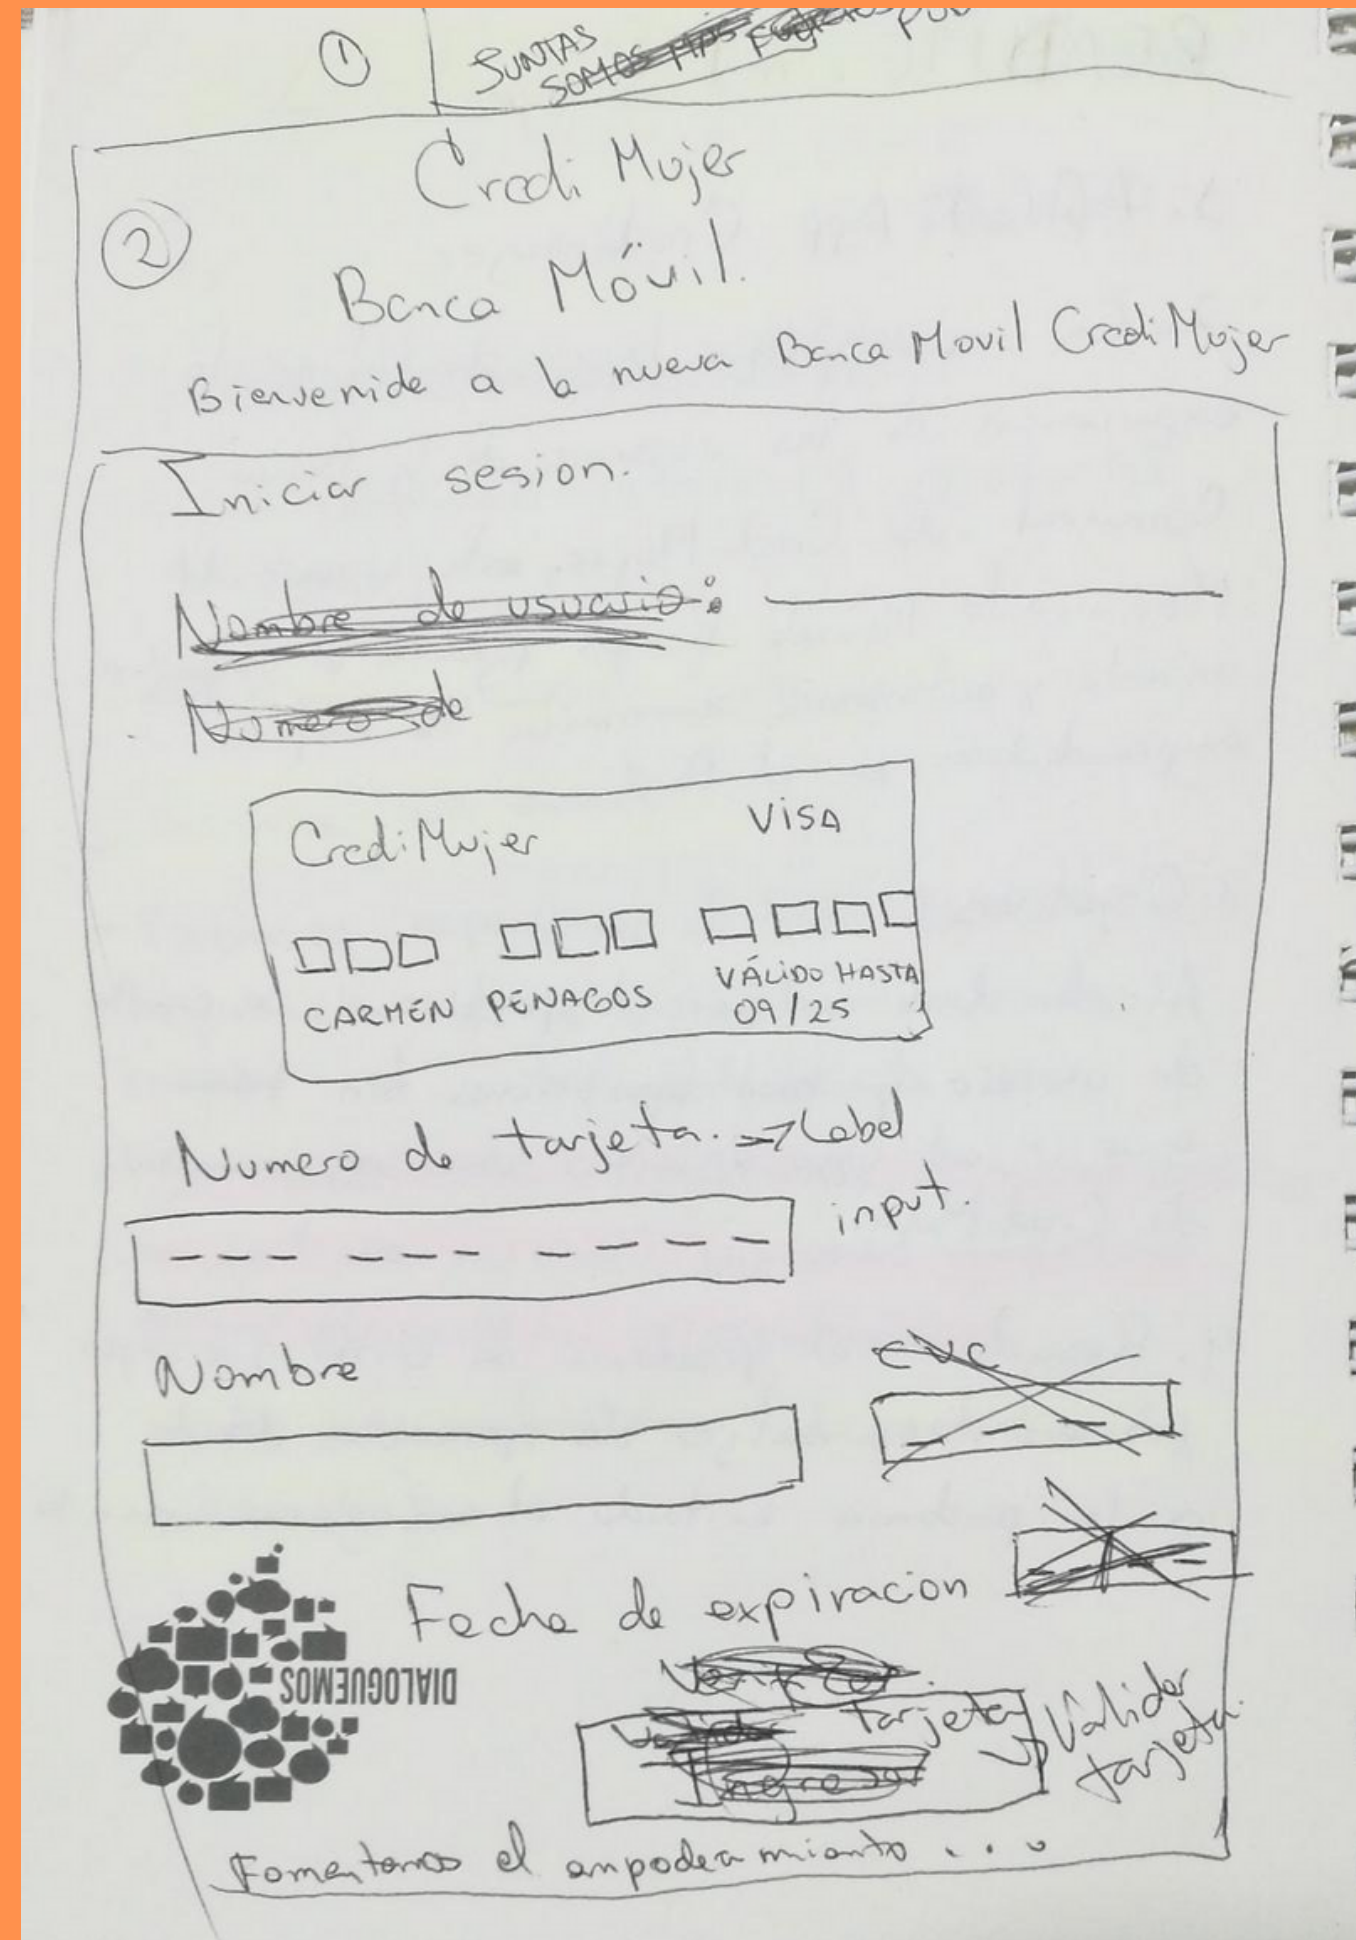 1
JUNTAS
SOMOS MAS
2
Credi Mujer
Banca Móvil.
Bienvenide a la nueva Banca Movil CrediMujer
Iniciar sesion.
Nombre de usuario:
Numero de
CrediMujer VISA
CARMEN PENAGOS
VÁLIDO HASTA
09/25
Numero de tarjeta. → Label
input.
Nombre
CVC
Fecha de expiracion
DIALOGUEMOS
tarjeta
Ingresar
Validar
tarjeta.
Fomentamos el empoderamiento ...